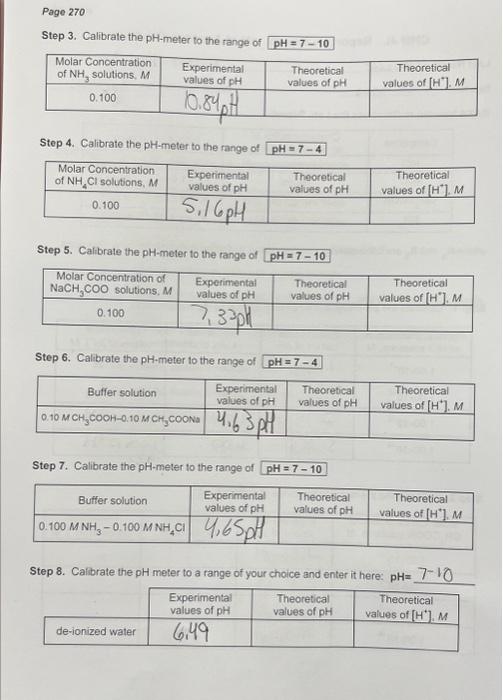 Page 270
Step 3. Calibrate the pH-meter to the range of pH = 7 – 10
Molar Concentration of NH₃ solutions, M | Experimental values of pH | Theoretical values of pH | Theoretical values of [H⁺], M
0.100 | 10.84pH
Step 4. Calibrate the pH-meter to the range of pH = 7 – 4
Molar Concentration of NH₄Cl solutions, M | Experimental values of pH | Theoretical values of pH | Theoretical values of [H⁺], M
0.100 | 5.16pH
Step 5. Calibrate the pH-meter to the range of pH = 7 – 10
Molar Concentration of NaCH₃COO solutions, M | Experimental values of pH | Theoretical values of pH | Theoretical values of [H⁺], M
0.100 | 7.33pH
Step 6. Calibrate the pH-meter to the range of pH = 7 – 4
Buffer solution | Experimental values of pH | Theoretical values of pH | Theoretical values of [H⁺], M
0.10 M CH₃COOH–0.10 M CH₃COONa | 4.63pH
Step 7. Calibrate the pH-meter to the range of pH = 7 – 10
Buffer solution | Experimental values of pH | Theoretical values of pH | Theoretical values of [H⁺], M
0.100 M NH₃ – 0.100 M NH₄Cl | 4.65pH
Step 8. Calibrate the pH meter to a range of your choice and enter it here: pH= 7-10
Experimental values of pH | Theoretical values of pH | Theoretical values of [H⁺], M
de-ionized water | 6.49